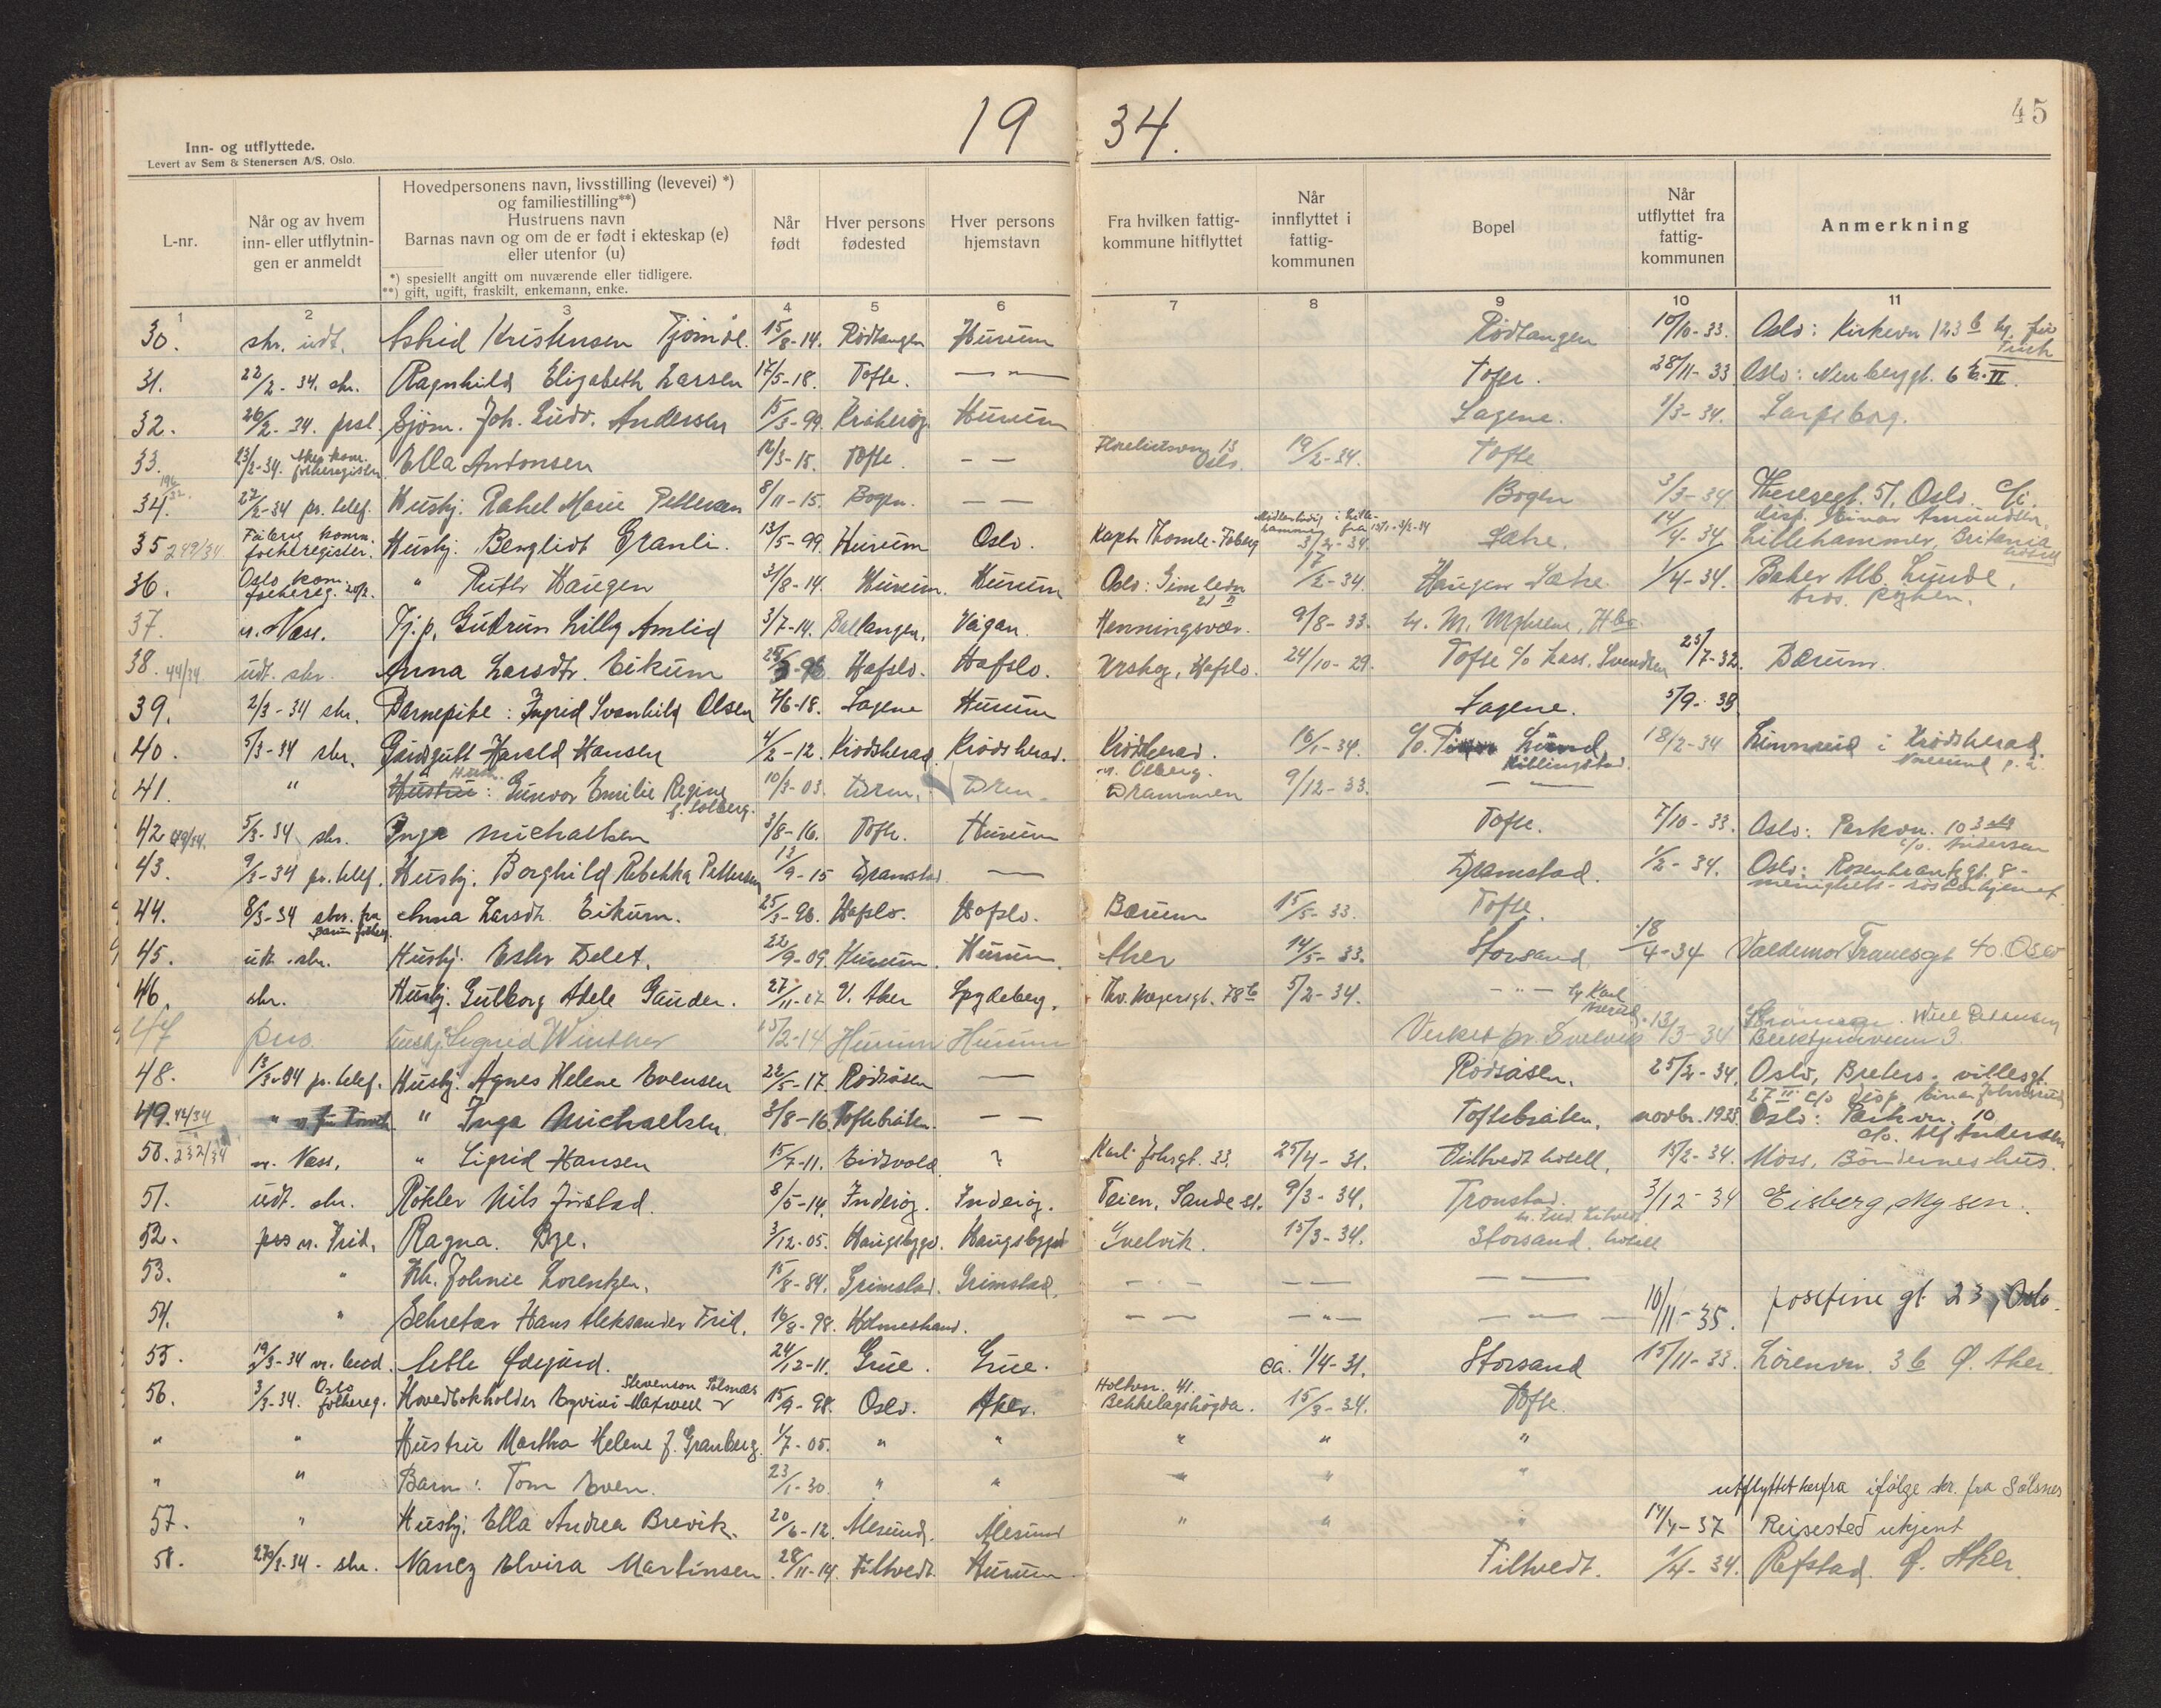 19 34.
45
Inn- og utflyttede.
Levert av Sem & Stenersen A/S, Oslo.
L-nr.
Når og av hvem inn- eller utflytnin-gen er anmeldt
Hovedpersonens navn, livsstilling (levevei) *)
og familiestilling**)
Hustruens navn
Barnas navn og om de er født i ekteskap (e)
eller utenfor (u)
*) spesiellt angitt om nuværende eller tidligere.
**) gift, ugift, fraskilt, enkemann, enke.
Når født
Hver persons fødested
Hver persons hjemstavn
Fra hvilken fattig-kommune hitflyttet
Når innflyttet i fattig-kommunen
Bopel
Når utflyttet fra fattig-kommunen
Anmerkning
1 2 3 4 5 6 7 8 9 10 11
30. skr. udt. Astrid Kristensen 15/8-14. Rødtangen Hurum Rødtangen 10/10-33. Oslo: Kirkevn 123 b
31. 22/2-34. skr. Ragnhild Elizabeth Larsen 17/5-18. Tofte. — " — Tofte. 28/11-33 Oslo: 6 b. II.
32. 26/2-34. prsl. Sjøm. Joh. Ludv. Andersen 15/3-99. Hurum Sagene. 1/3-34. Sarpsborg.
33. 23/2-34. Aker kom. folkeregister Ella Antonsen 12/3-15. Tofte. — — 13 Oslo. 19/2-34. Tofte
34. 27/2-34 pr. telef. Husbj. Rakel Marie Pettersen 8/11-15. Bogen. — — Bogen 3/3-34 Theresegt. 51, Oslo. c/o. disp. Einar Amundsen.
35 249/34 Fåberg komm. folkeregister. Husbj. Bergliot Granli. 13/5-99. Hurum Oslo. Kapt. Thomle-Fåberg 3/2-34. Sætre. 14/4-34 Lillehammer, Britania
36. Oslo kom. folkereg. 20/2. " Ruth Haugen 31/8-14. Hurum. Hurum Oslo: 21 II 1/2-34. Haugen Sætre 1/4-34. Baker Lunde, Røyken.
37. v. Næss. Tj.p. Gudrun Lilly Amlid 3/7-14. Ballangen. Vågan. Henningsvær. 9/8-33. M. Myhrene,
38. 44/34 udt. skr. Anna Larsdtr. Eikum Hafslo. Hafslo. Hafslo. 24/10-29. Tofte c/o Svendsen 25/7-32. Bærum.
39. 2/3-34 skr. Barnepike: Ingrid Svanhild Olsen 7/6-18. Sagene Hurum Sagene. 5/9-33
40. 5/3-34 skr. Gårdsgutt Harald Hansen 4/2-12. Krødsherad. Krødsherad. Krødsherad. 16/1-34. c/o. Lund, Killingstad. 18/2-34 i Krødsherad.
41. " Hustru: Gunvor Emilie Regine f. Solberg. 10/3-03. Drm. Drm. Drammen 9/12-33. — —
42 49/34. 5/3-34 skr. Inga Michaelsen 3/8-16. Tofte. Hurum Tofte. 7/10-33. Oslo: Parkvn. 10 c/o. Andersen
43. 9/3-34 pr. telef. Husbj. Borghild Rebekka Pettersen 13/9-15 Dramstad — Dramstad. 1/2-34. Oslo: Rosenkrantzgt. 8 - menighets-søsterhjemmet
44. 8/3-34 skr. fra Bærum folkereg. Anna Larsdtr. Eikum. 25/3-96. Hafslo. Hafslo. Bærum 15/5-33. Tofte.
45. udt. skr. Husbj. Ester Delet. 22/9-09. Hurum. Hurum. Aker 14/5-33. Storsand 18/4-34 Valdemar Tranesgt 40 Oslo
46. skr. Husbj. Gulborg Adele Gauden. 27/11-07 V. Aker Spydeberg. Thv. Meyersgt. 78 b 5/2-34. — " — Karl
47 Husbj. Sigrid Winther 15/2-14 Hurum Hurum Verket pr. Svelvik 13/3-34 3.
48. 13/3-34 pr. telef. Husbj. Agnes Helene Evensen 22/5-17. Rødsåsen — Rødsåsen. 25/2-34. Oslo, villagt. 27 II c/o disp. Einar
49. 42/34 " Inga Michaelsen 3/8-16. Toftebråten. — — Toftebråten. novbr. 1933. Oslo: Parkvn. 10 c/o. Alf Andersen
50. 232/34 v. Næss. " Sigrid Hansen 15/7-11. Eidsvold ? Karl Johsgt. 33. 25/4-31. Tiltvedt hotell. 15/2-34. Moss, Bøndernes hus.
51. udt. skr. Røkter Nils Jørstad. 8/5-14. Inderøy. Inderøy. Teien, Sande st. 9/3-34. Tronstad. 3/12-34 Eisberg, Mysen.
52. prs v. Frid. Ragna Bye. 3/12-05. Haugsbygd. Haugsbygd Svelvik. 15/3-34. Storsand. hotell
53. " Frk. Johnie Lorentzen. 15/8-84. Grimstad. Grimstad. — — — — — —
54. " Sekretær Hans Aleksander Frid. 16/8-98. Holmestrand. — — — " — — — 10/11-35. Josefine gt. 23, Oslo.
55. 19/3-34 Ødegård. 24/12-11. Grue. Grue. ca. 1/4-31. Storsand 15/11-33. Lørenvn. 36 Ø. Aker.
56. 3/3-34. Oslo folkereg. Hovedbokholder Maxwell Stevenson Sølsnes 15/9-98. Oslo. Aker. Holtvn. 41. Bekkelagshøgda. 15/3-34. Tofte.
" " Hustru Martha Helene f. Granberg. 1/7-05. " " " " "
" " Barn: Tom Even. 23/1-30. " " " " "
utflyttet herfra ifølge skr. fra Sølsnes
57. " Husbj. Ella Andrea Brevik. 20/6-12. Ålesund. Ålesund " " " 14/4-37 Reisested ukjent
58. 27/3-34. skr. Nancy Elvira Martinsen. 28/11-14. Tiltvedt Hurum Tiltvedt. 1/4-34. Refstad. Ø. Aker.